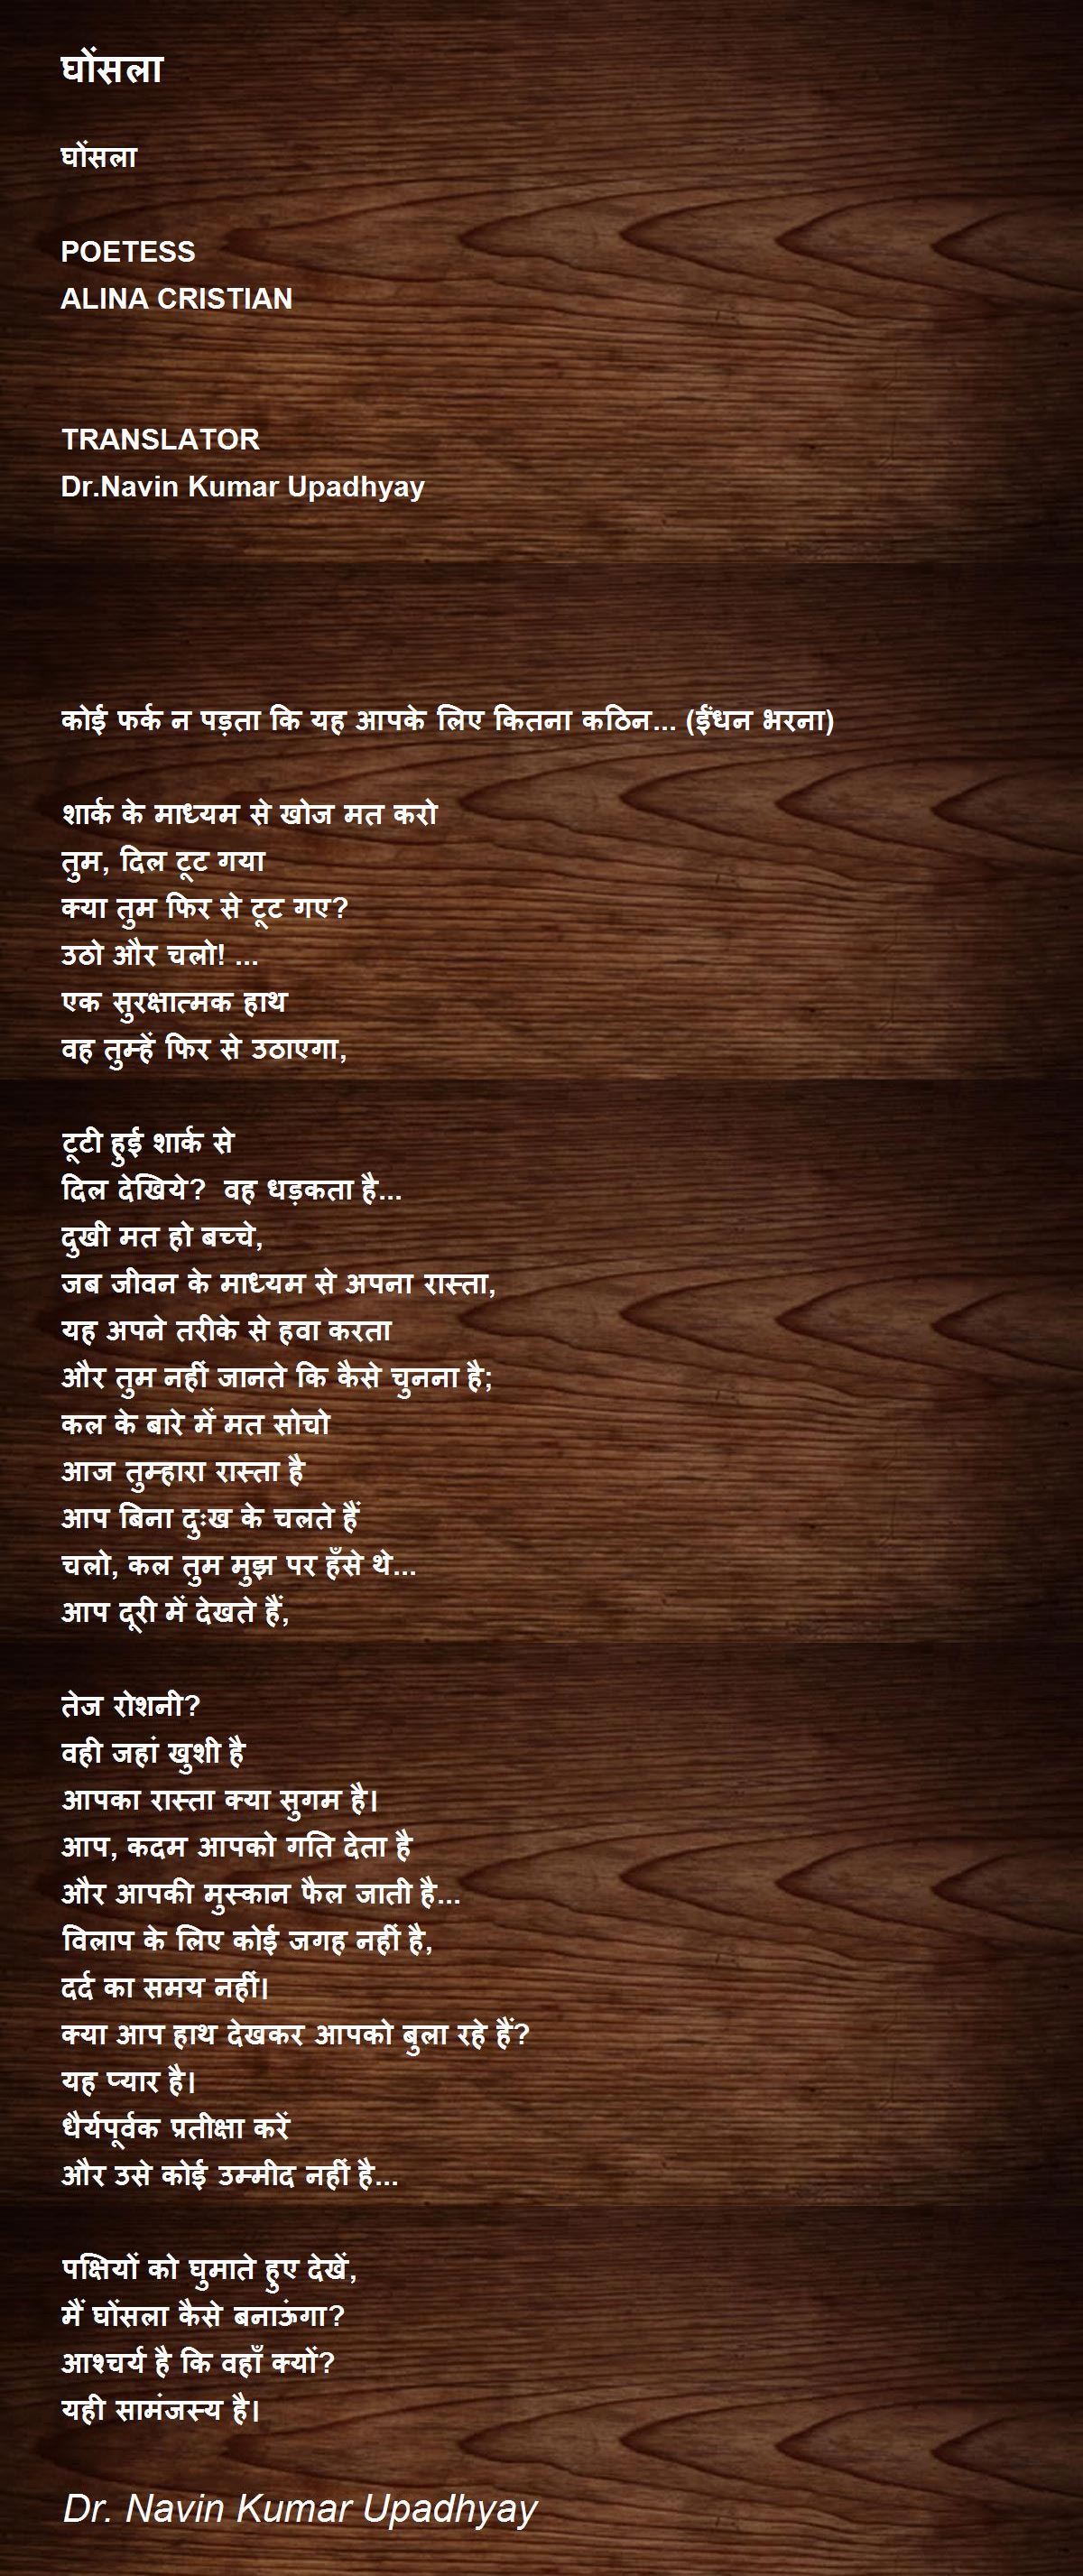 घोंसला
घोंसला
POETESS
ALINA CRISTIAN
TRANSLATOR
Dr.Navin Kumar Upadhyay
कोई फर्क न पड़ता कि यह आपके लिए कितना कठिन... (ईंधन भरना)
शार्क के माध्यम से खोज मत करो
तुम, दिल टूट गया
क्या तुम फिर से टूट गए?
उठो और चलो! ...
एक सुरक्षात्मक हाथ
वह तुम्हें फिर से उठाएगा,
टूटी हुई शार्क से
दिल देखिये? वह धड़कता है...
दुखी मत हो बच्चे,
जब जीवन के माध्यम से अपना रास्ता,
यह अपने तरीके से हवा करता
और तुम नहीं जानते कि कैसे चुनना है;
कल के बारे में मत सोचो
आज तुम्हारा रास्ता है
आप बिना दुःख के चलते हैं
चलो, कल तुम मुझ पर हँसे थे...
आप दूरी में देखते हैं,
तेज रोशनी?
वही जहां खुशी है
आपका रास्ता क्या सुगम है।
आप, कदम आपको गति देता है
और आपकी मुस्कान फैल जाती है...
विलाप के लिए कोई जगह नहीं है,
दर्द का समय नहीं।
क्या आप हाथ देखकर आपको बुला रहे हैं?
यह प्यार है।
धैर्यपूर्वक प्रतीक्षा करें
और उसे कोई उम्मीद नहीं है...
पक्षियों को घुमाते हुए देखें,
मैं घोंसला कैसे बनाऊंगा?
आश्चर्य है कि वहाँ क्यों?
यही सामंजस्य है।
Dr. Navin Kumar Upadhyay